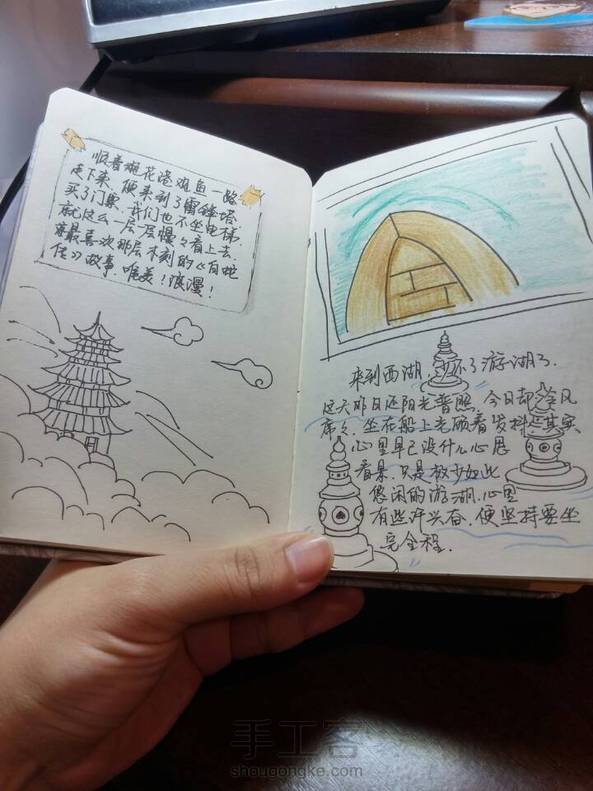 顺着观花港观鱼一路
走下来,便来到了雷锋塔,
买了门票,我们也不坐电梯,
就这么一层层慢々看上去.
我最喜欢那层木刻的《白蛇
传》故事,唯美!浪漫!
来到西湖,少不了游湖了.
这天昨日还阳光普照,今日却冷风
席々,坐在船上光顾着发抖,其实
心里早已没什么心思
看景,只是故少如此
悠闲的游湖,心里
有些许兴奋,便坚持要坐
完全程.
手工客
shougongke.com